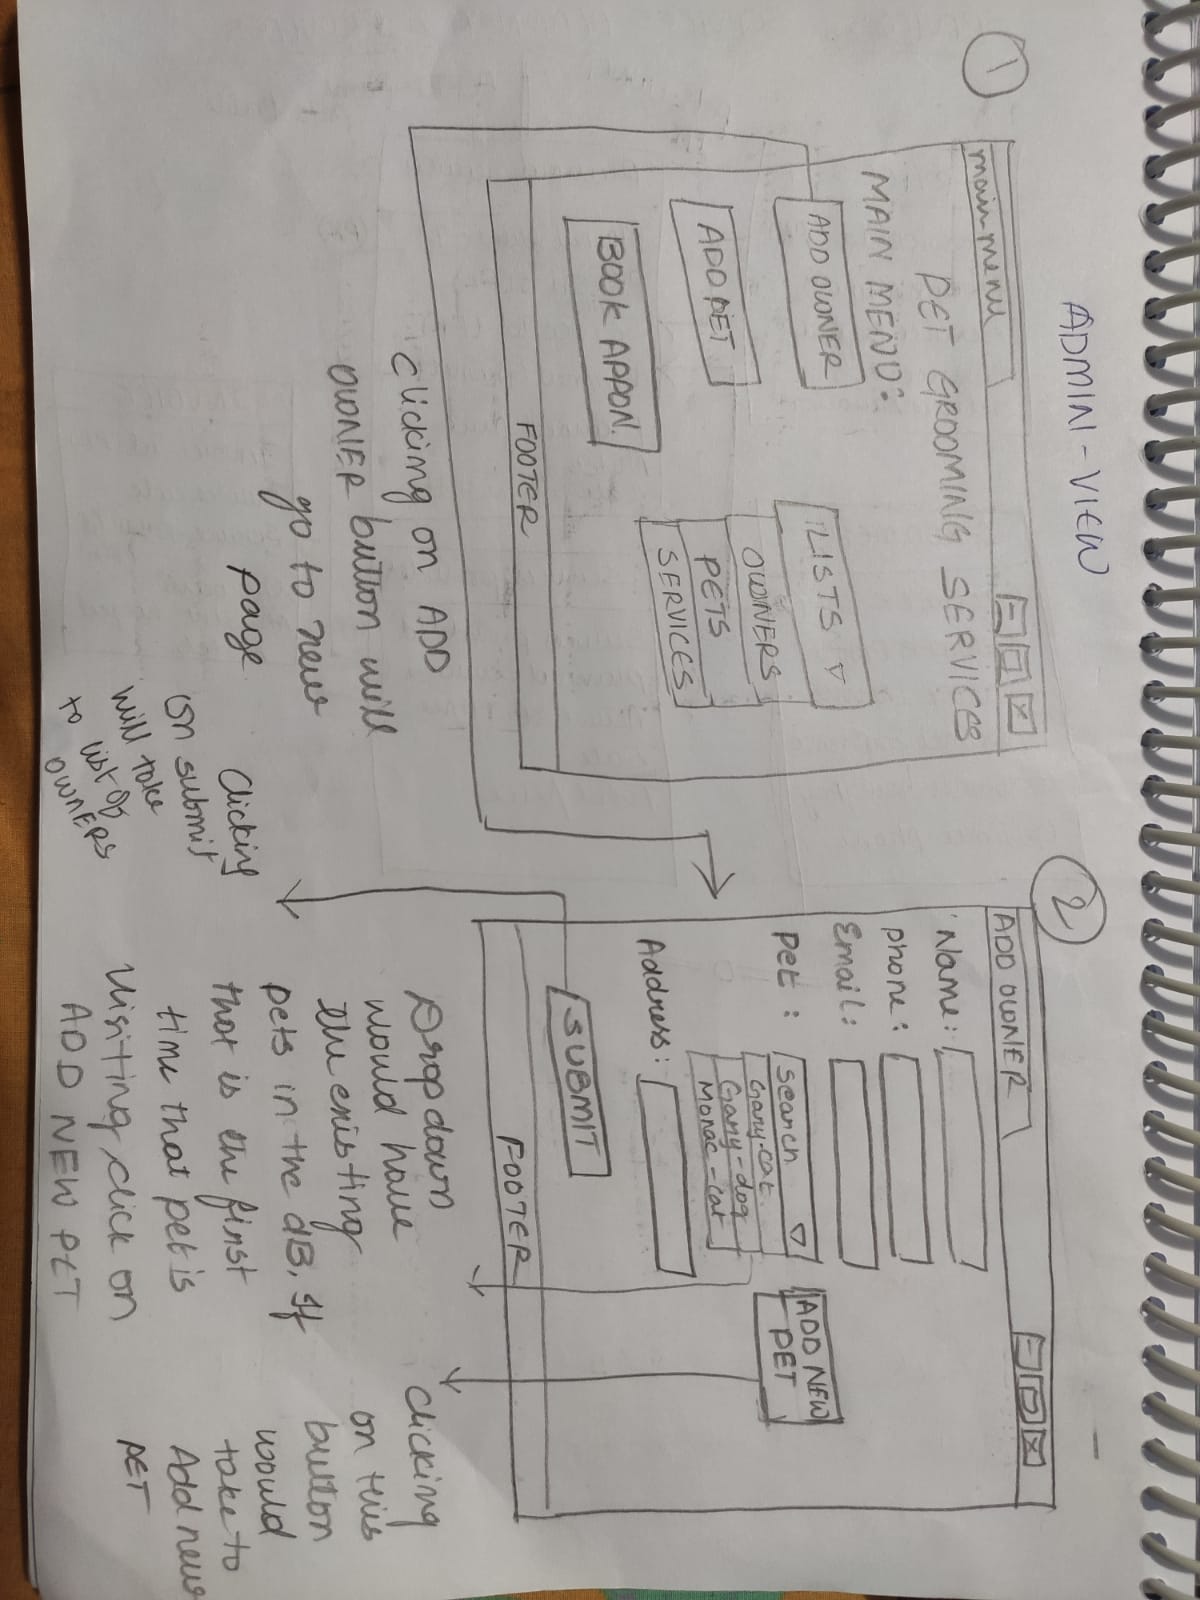 ADMIN-VIEW
1
main-menu
PET GROOMING SERVICES
MAIN MENU:
ADD OWNER
ADD PET
BOOK APPON.
LISTS
OWNERS
PETS
SERVICES
FOOTER
clicking on ADD
OWNER button will
go to new
page
2
ADD OWNER
Name:
phone:
Email:
pet:
search
Gary-cat
Gany-dog
Monac-cat
ADD NEW
PET
Address:
SUBMIT
FOOTER
Clicking
on submit
will take
to list of
OWNERS
Drop down
would have
the existing
pets in the dB, if
that is the first
time that pet is
visiting, click on
ADD NEW PET
Clicking
on this
button
would
take to
Add new
PET